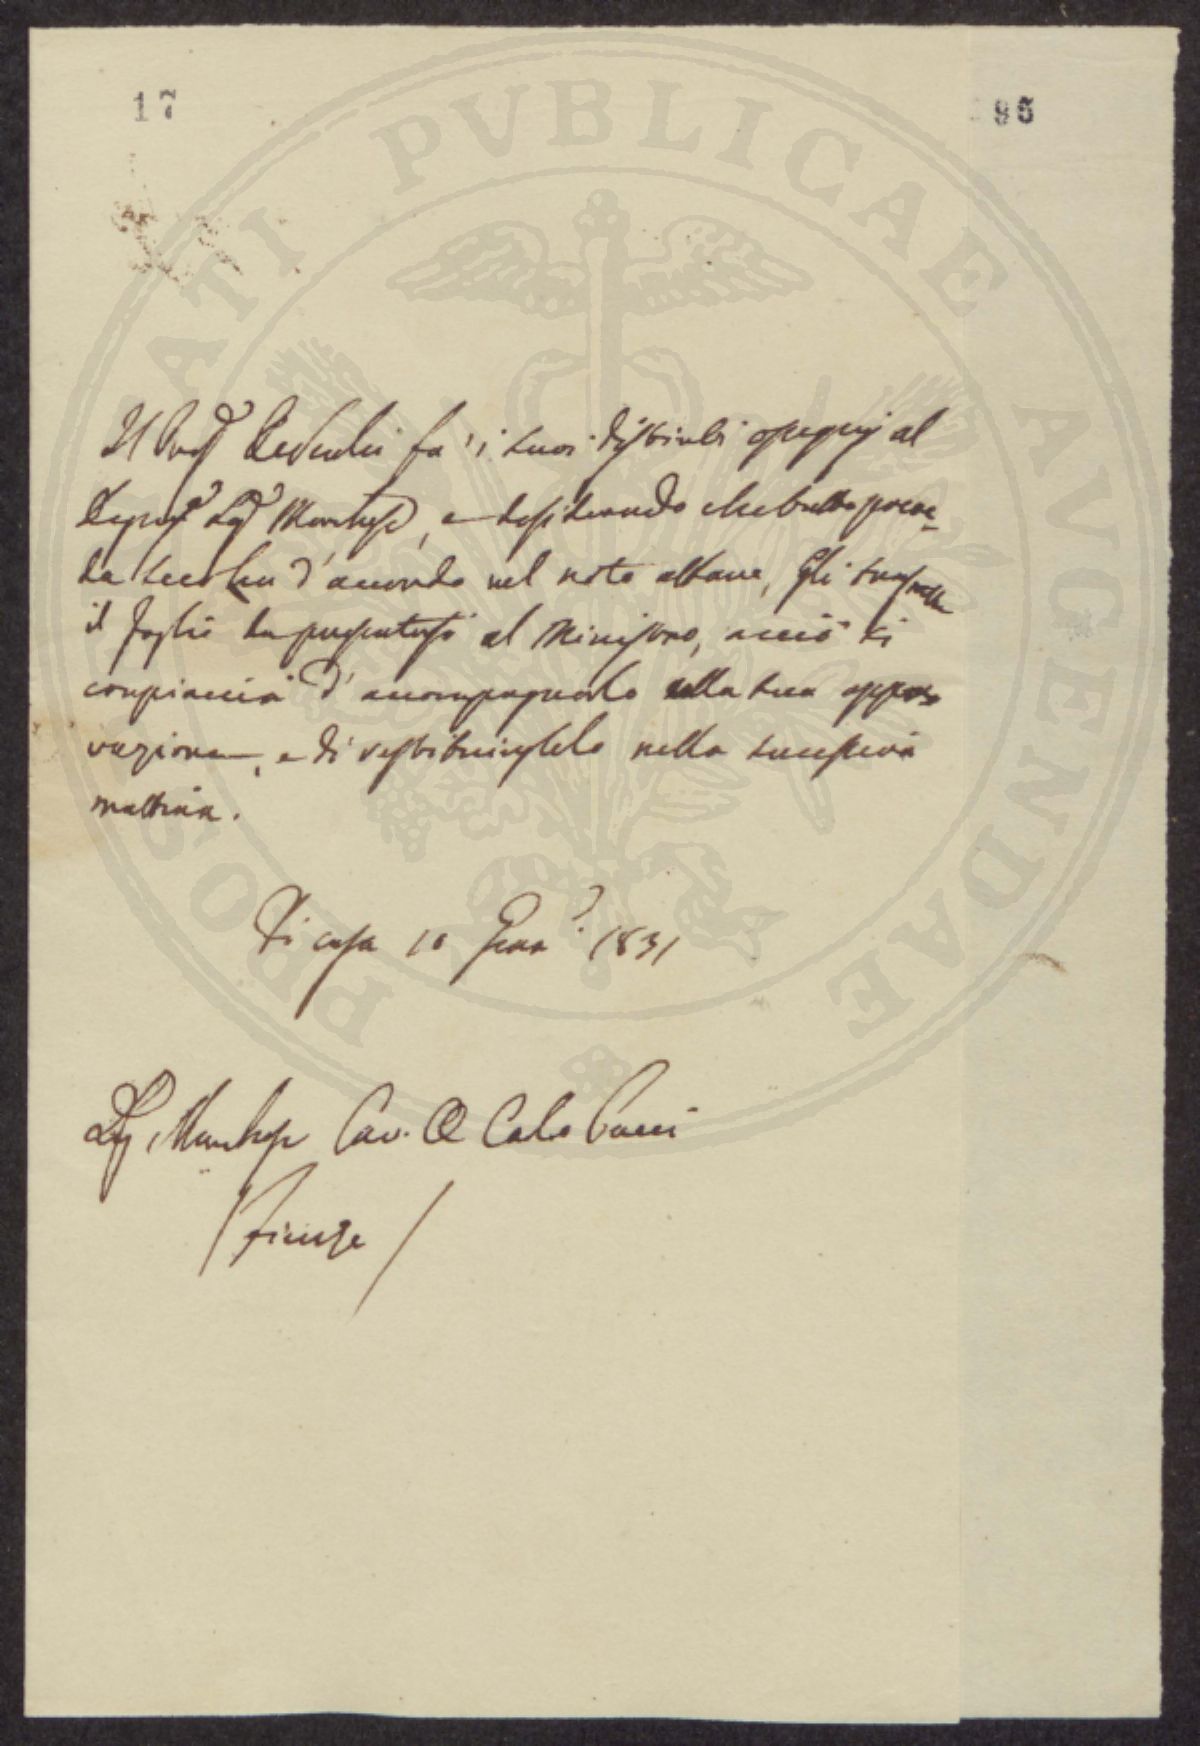 17
95
PROSPERITATI PVBLICAE AVGENDAE
Il fa' i suoi distinti ossequj al
Sig.r Marchese, e desiderando che tutto proce-
da d'accordo nel noto affare, gli trasmette
il foglio da presentarsi al Ministro, acciò si
compiaccia d'accompagnarlo colla sua appro
vazione, e di restituirglielo nella susseguente
mattina.
Di casa 10 Genn.o 1831
Sig. Marchese Cav. Pucci
/Firenze/